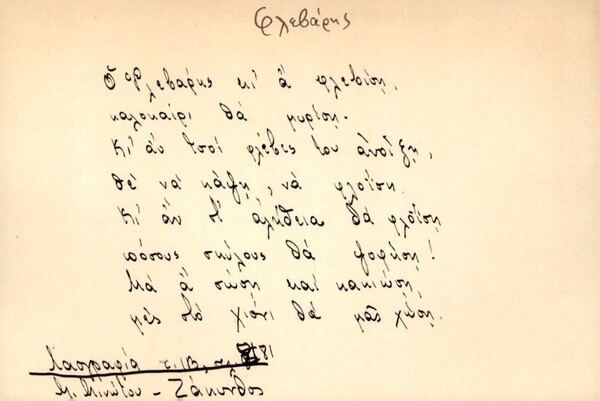 Φλεβάρης
Ὁ Φλεβάρης κι' ἂ φλεβίσῃ,
καλοκαίρι θὰ μυρίσῃ.
Κι' ἂν τσοὶ φλέβες του ἀνοίξῃ,
θὲ νὰ κάψῃ, νὰ φλοΐσῃ.
Κι' ἂν στ' ἀλήθεια θὰ φλοΐσῃ
πόσους σκύλους θὰ ψοφήσῃ!
Μὰ ἂ σώσῃ καὶ κακιώσῃ
μὲς στὸ χιόνι θὰ μᾶς χώσῃ.
Λαογραφία τ. ΙΒ, σ. 81
Μ. Μινώτου - Ζάκυνθος